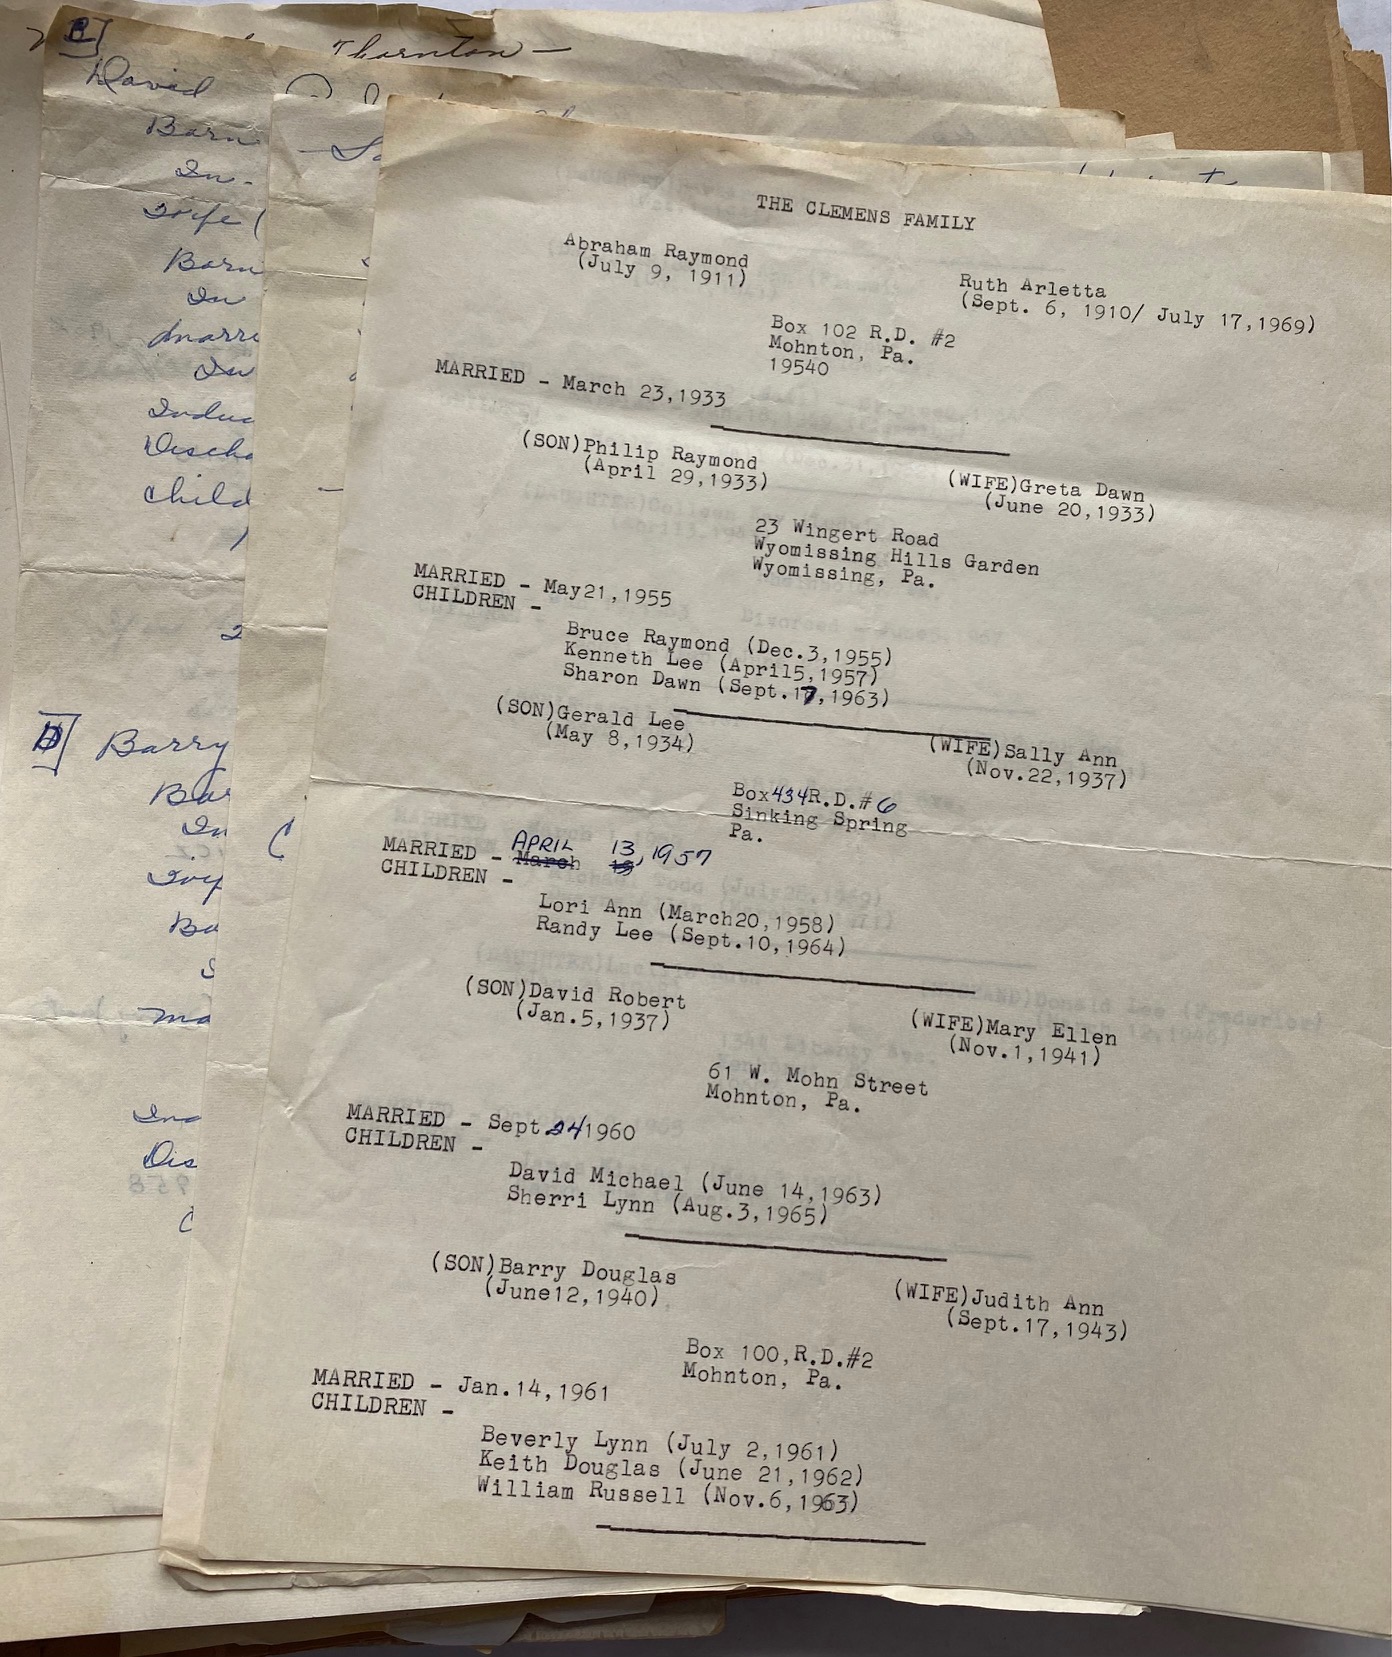 Thornton —
B]
David
Barn
In.
Wife (
Barn
In
Marri
In
Induc
Discha
Child
1
2
D] Barry
Bar
In
Ba
S
Ma
Ind
Dis
C
C
THE CLEMENS FAMILY
Abraham Raymond
(July 9, 1911)
Ruth Arletta
(Sept. 6, 1910/ July 17,1969)
Box 102 R.D. #2
Mohnton, Pa.
19540
MARRIED - March 23,1933
(SON)Philip Raymond
(April 29,1933)
(WIFE)Greta Dawn
(June 20,1933)
23 Wingert Road
Wyomissing Hills Garden
Wyomissing, Pa.
MARRIED - May21,1955
CHILDREN -
Bruce Raymond (Dec.3,1955)
Kenneth Lee (April5,1957)
Sharon Dawn (Sept.17,1963)
(SON)Gerald Lee
(May 8,1934)
(WIFE)Sally Ann
(Nov.22,1937)
Box434R.D.#6
Sinking Spring
Pa.
APRIL 13,1957
MARRIED - March
CHILDREN -
Lori Ann (March20,1958)
Randy Lee (Sept.10,1964)
(SON)David Robert
(Jan.5,1937)
(WIFE)Mary Ellen
(Nov.1,1941)
61 W. Mohn Street
Mohnton, Pa.
MARRIED - Sept 24/1960
CHILDREN -
David Michael (June 14,1963)
Sherri Lynn (Aug.3,1965)
(SON)Barry Douglas
(June12,1940)
(WIFE)Judith Ann
(Sept.17,1943)
Box 100,R.D.#2
Mohnton, Pa.
MARRIED - Jan.14,1961
CHILDREN -
Beverly Lynn (July 2,1961)
Keith Douglas (June 21,1962)
William Russell (Nov.6,1963)